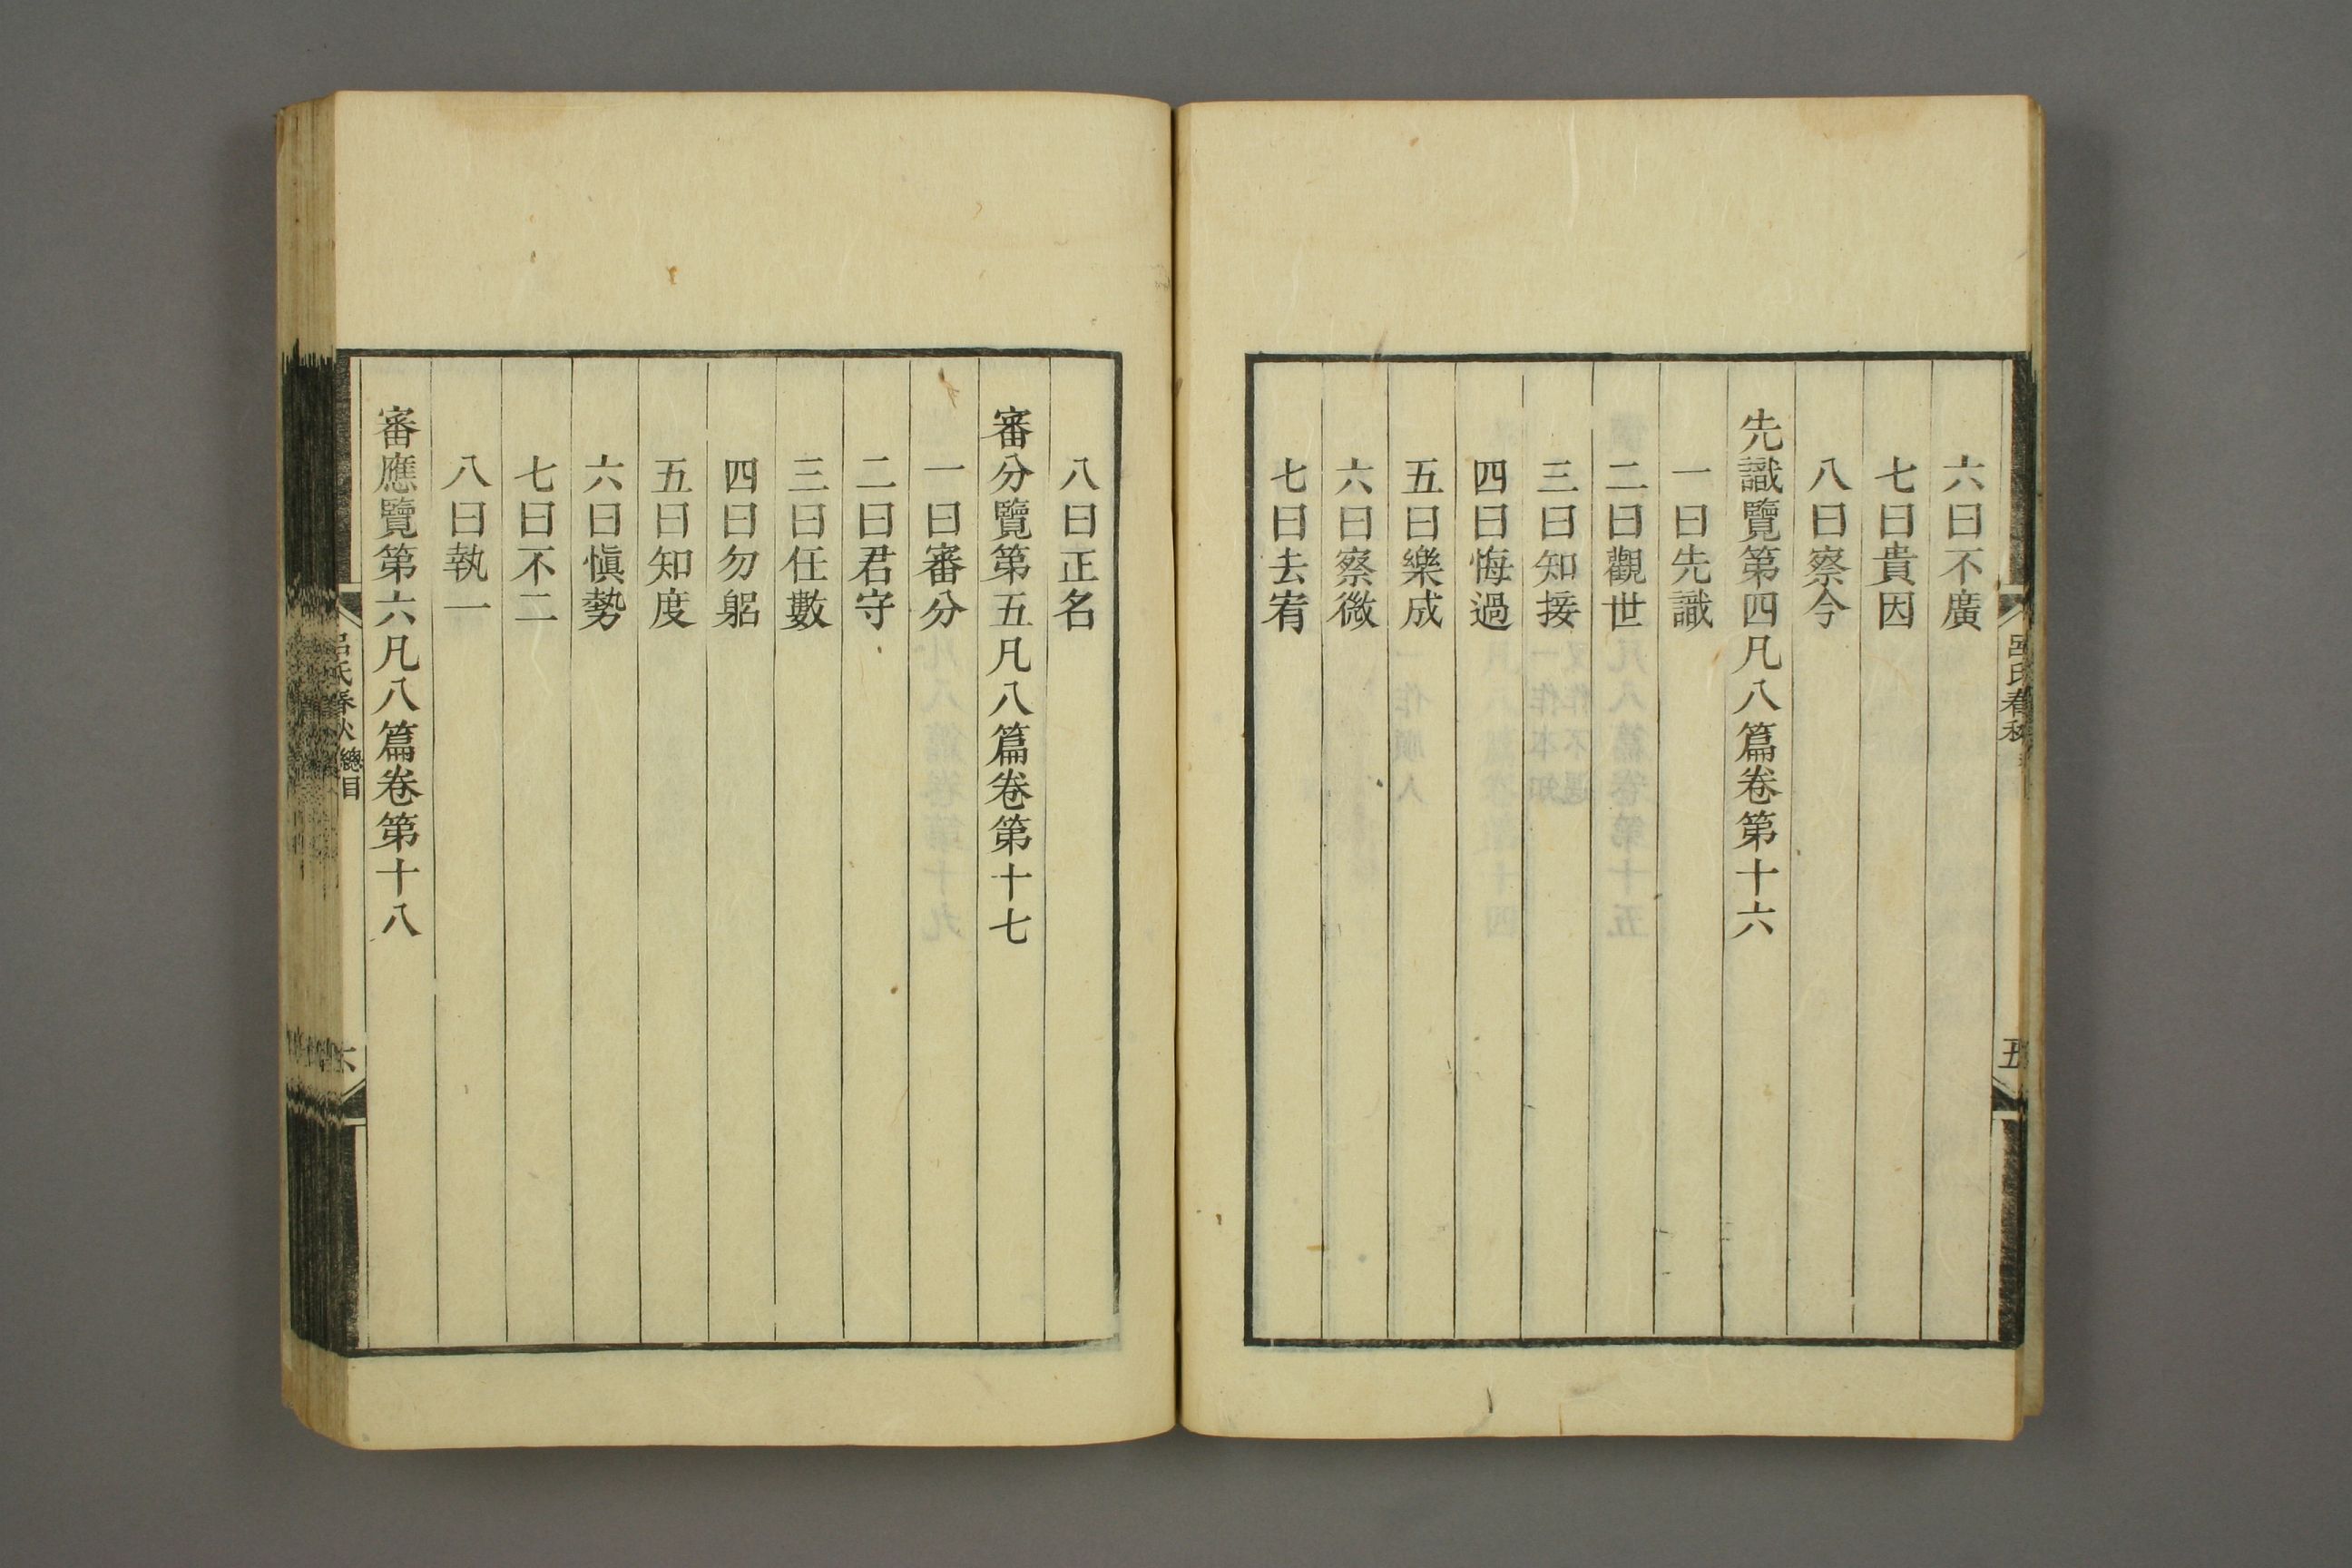 六曰不廣
七曰貴因
八曰察今
先識覽第四凡八篇卷第十六
一曰先識
二曰觀世
三曰知接
四曰悔過
五曰樂成
六曰察微
七曰去宥
八曰正名
審分覽第五凡八篇卷第十七
一曰審分
二曰君守
三曰任數
四曰勿躬
五曰知度
六曰愼勢
七曰不二
八曰執一
審應覽第六凡八篇卷第十八
呂氏春秋 總目
六
呂氏春秋
五